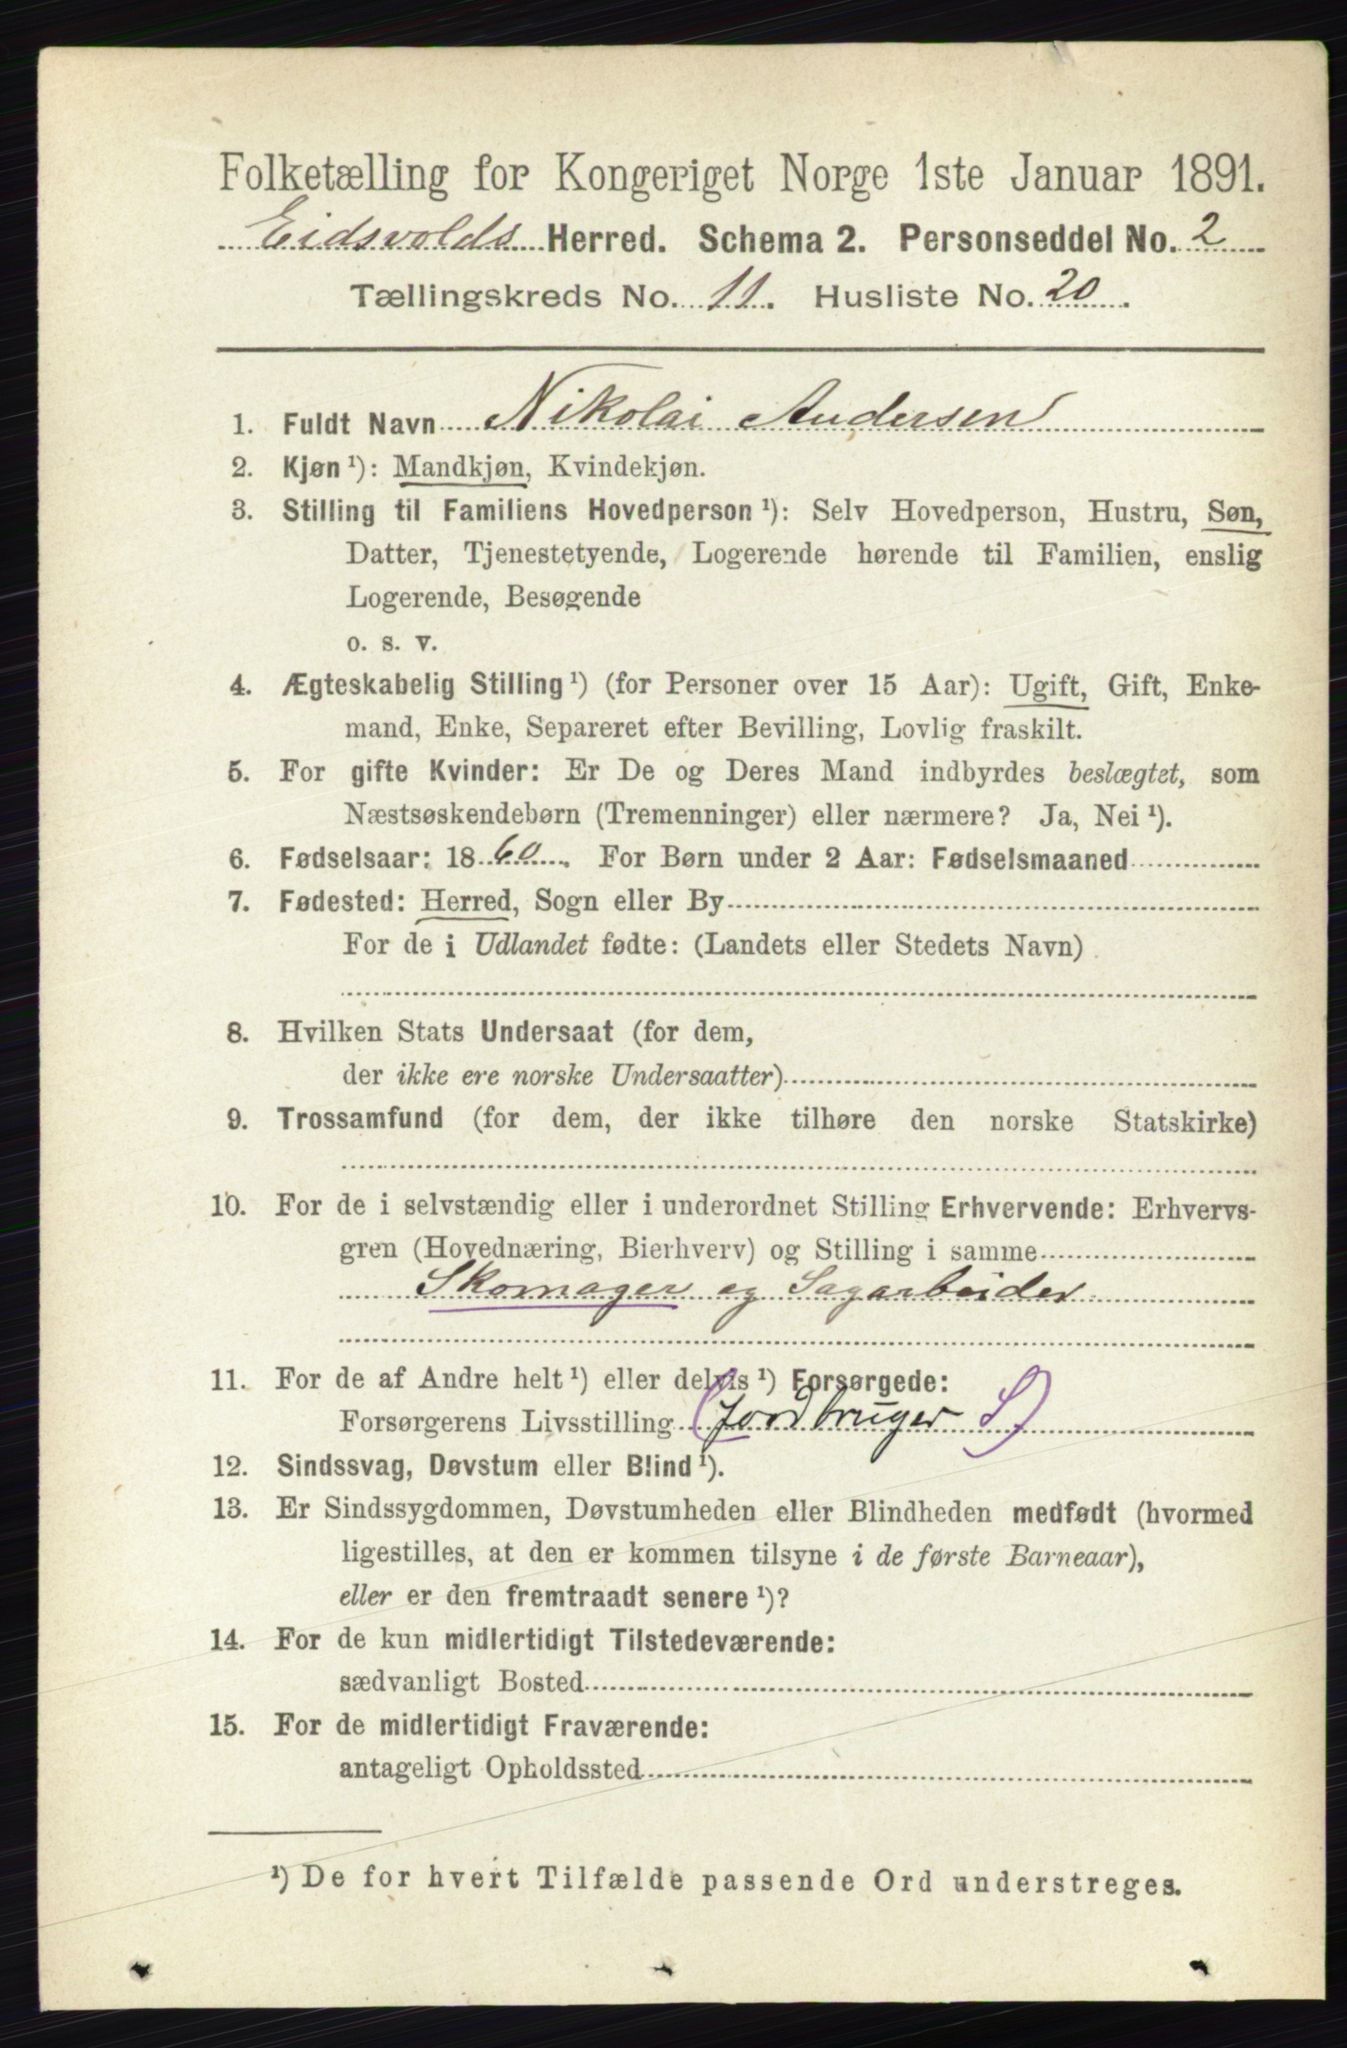 Folketælling for Kongeriget Norge 1ste Januar 1891.
Eidsvolds Herred. Schema 2. Personseddel No. 2
Tællingskreds No. 11. Husliste No. 20.
1. Fuldt Navn Nikolai Andersen
2. Kjøn ¹): Mandkjøn, Kvindekjøn.
3. Stilling til Familiens Hovedperson ¹): Selv Hovedperson, Hustru, Søn,
Datter, Tjenestetyende, Logerende hørende til Familien, enslig
Logerende, Besøgende
o. s. v.
4. Ægteskabelig Stilling ¹) (for Personer over 15 Aar): Ugift, Gift, Enke-
mand, Enke, Separeret efter Bevilling, Lovlig fraskilt.
5. For gifte Kvinder: Er De og Deres Mand indbyrdes beslægtet, som
Næstsøskendebørn (Tremenninger) eller nærmere? Ja, Nei ¹).
6. Fødselsaar: 1860. For Børn under 2 Aar: Fødselsmaaned
7. Fødested: Herred, Sogn eller By
For de i Udlandet fødte: (Landets eller Stedets Navn)
8. Hvilken Stats Undersaat (for dem,
der ikke ere norske Undersaatter)
9. Trossamfund (for dem, der ikke tilhøre den norske Statskirke)
10. For de i selvstændig eller i underordnet Stilling Erhvervende: Erhvervs-
gren (Hovednæring, Bierhverv) og Stilling i samme
Skomager og Sagarbeider
11. For de af Andre helt ¹) eller delvis ¹) Forsørgede:
Forsørgerens Livsstilling (Jordbruger S)
12. Sindssvag, Døvstum eller Blind ¹).
13. Er Sindssygdommen, Døvstumheden eller Blindheden medfødt (hvormed
ligestilles, at den er kommen tilsyne i de første Barneaar),
eller er den fremtraadt senere ¹)?
14. For de kun midlertidigt Tilstedeværende:
sædvanligt Bosted
15. For de midlertidigt Fraværende:
antageligt Opholdssted
¹) De for hvert Tilfælde passende Ord understreges.